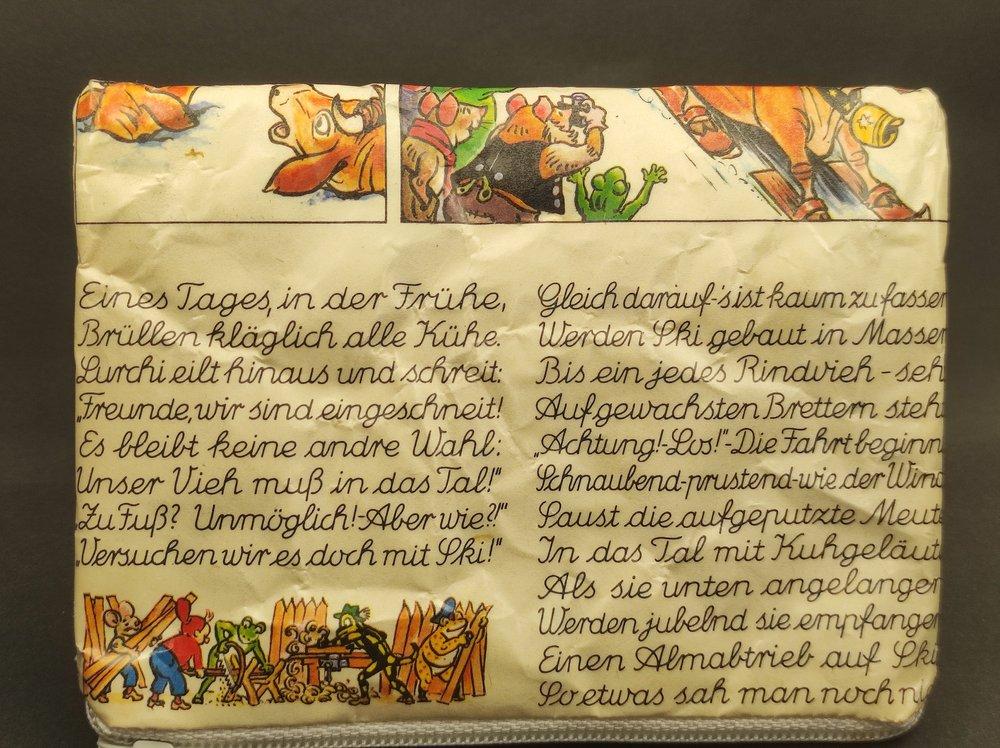 Eines Tages, in der Frühe,
Brüllen kläglich alle Kühe.
Lurchi eilt hinaus und schreit:
„Freunde, wir sind eingeschneit!
Es bleibt keine andre Wahl:
Unser Vieh muß in das Tal!"
„Zu Fuß? Unmöglich!-Aber wie?!"
„Versuchen wir es doch mit Ski!"
Gleich darauf-'s ist kaum zu fassen
Werden Ski gebaut in Massen
Bis ein jedes Rindvieh - seh
Auf gewachsten Brettern steh
„Achtung!-Los!"-Die Fahrt beginn
Schnaubend-prustend-wie der Wind
Saust die aufgeputzte Meute
In das Tal mit Kuhgeläut
Als sie unten angelangen
Werden jubelnd sie empfangen
Einen Almabtrieb auf Ski
So etwas sah man noch ni